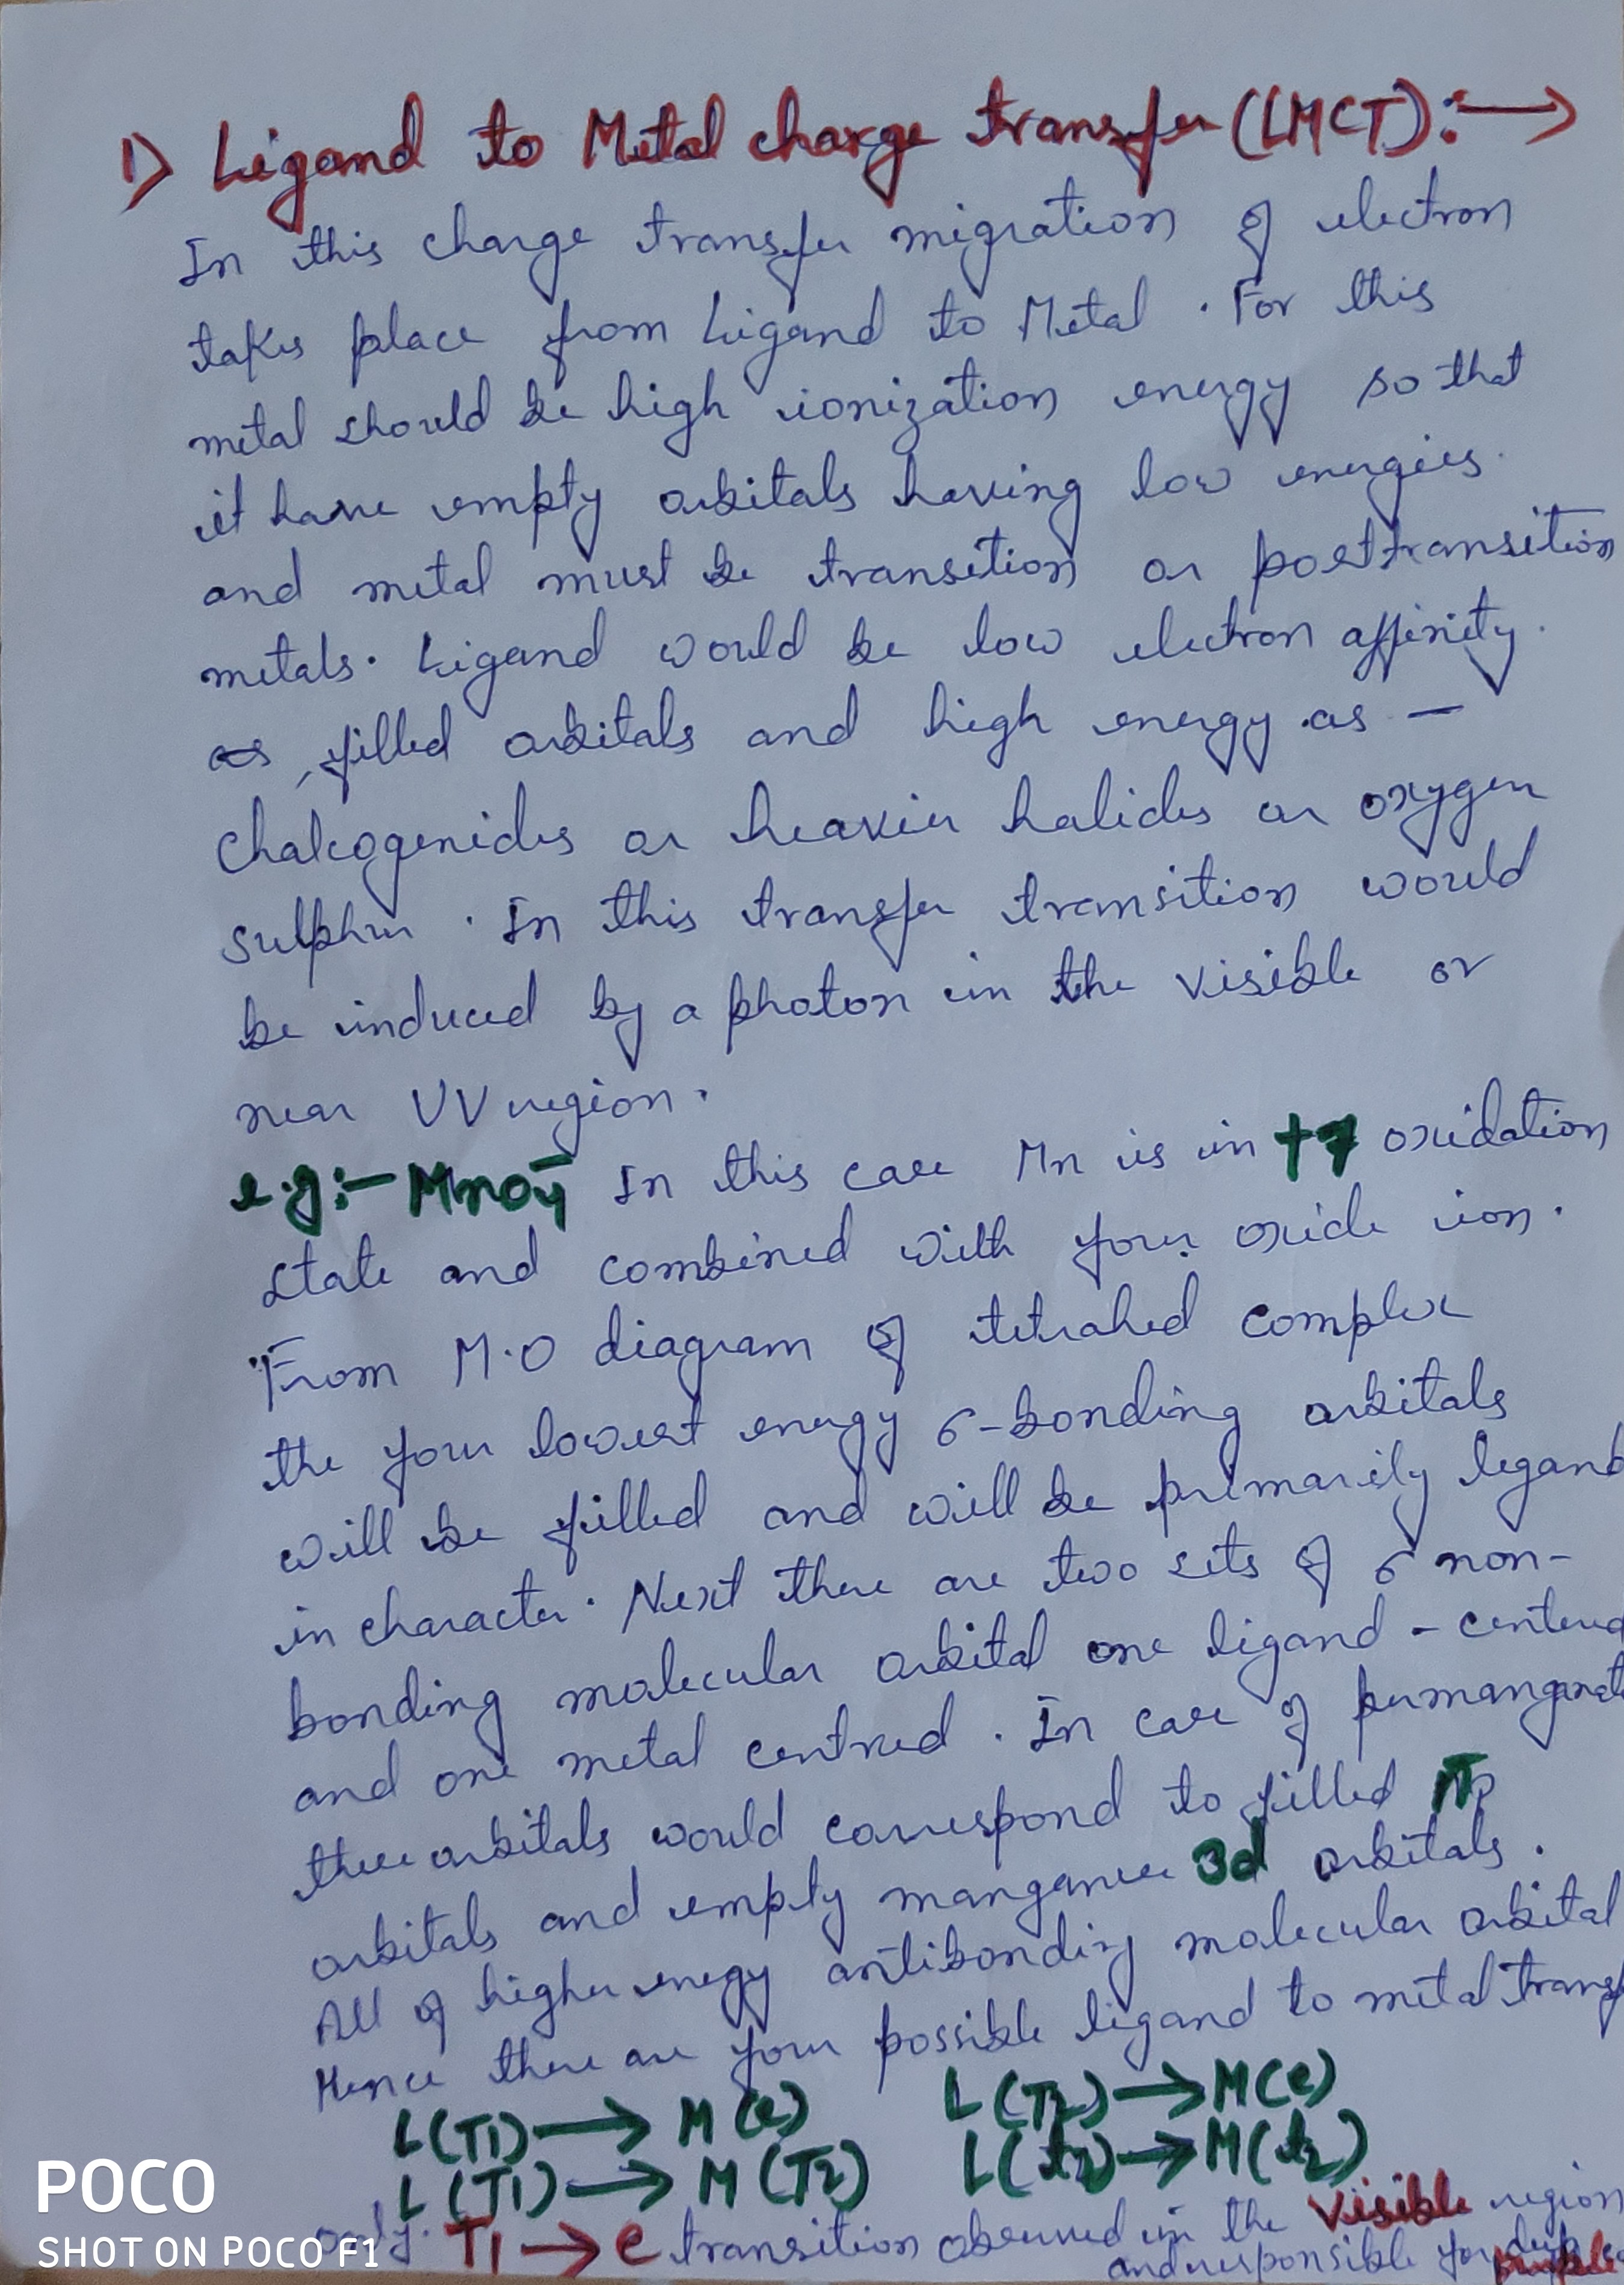 1) Ligand to Metal charge transfer (LMCT):→
In this charge transfer migration of electron
takes place from Ligand to Metal . For this
metal should be high ionization energy so that
it have empty orbitals having low energies.
and metal must be transition or posttransition
metals. Ligand would be low electron affinity.
as , filled orbitals and high energy .as –
Chalcogenides or heavier halides or oxygen
sulphur . In this transfer transition would
be induced by a photon in the visible or
near UV region.
e.g:- MnO4⁻ In this case Mn is in +7 oxidation
state and combined with four oxide ion.
From M.O diagram of tetrahed complex
the four lowest energy σ-bonding orbitals
will be filled and will be primarily ligand
in character. Next there are two sets of σ non-
bonding molecular orbital one ligand - centered
and one metal centred . In case of permanganate
these orbitals would correspond to filled
orbitals and empty manganese 3d orbitals .
All of higher enegy antibonding molecular orbital
Hence there are four possible ligand to metal transf
L(T1) → M(e) L(T2) → M(e)
L(T1) → M(T2) L(t2) → M(t2)
only. T1 → e transition observed in the visible region
and responsible for deep purple
POCO
SHOT ON POCO F1